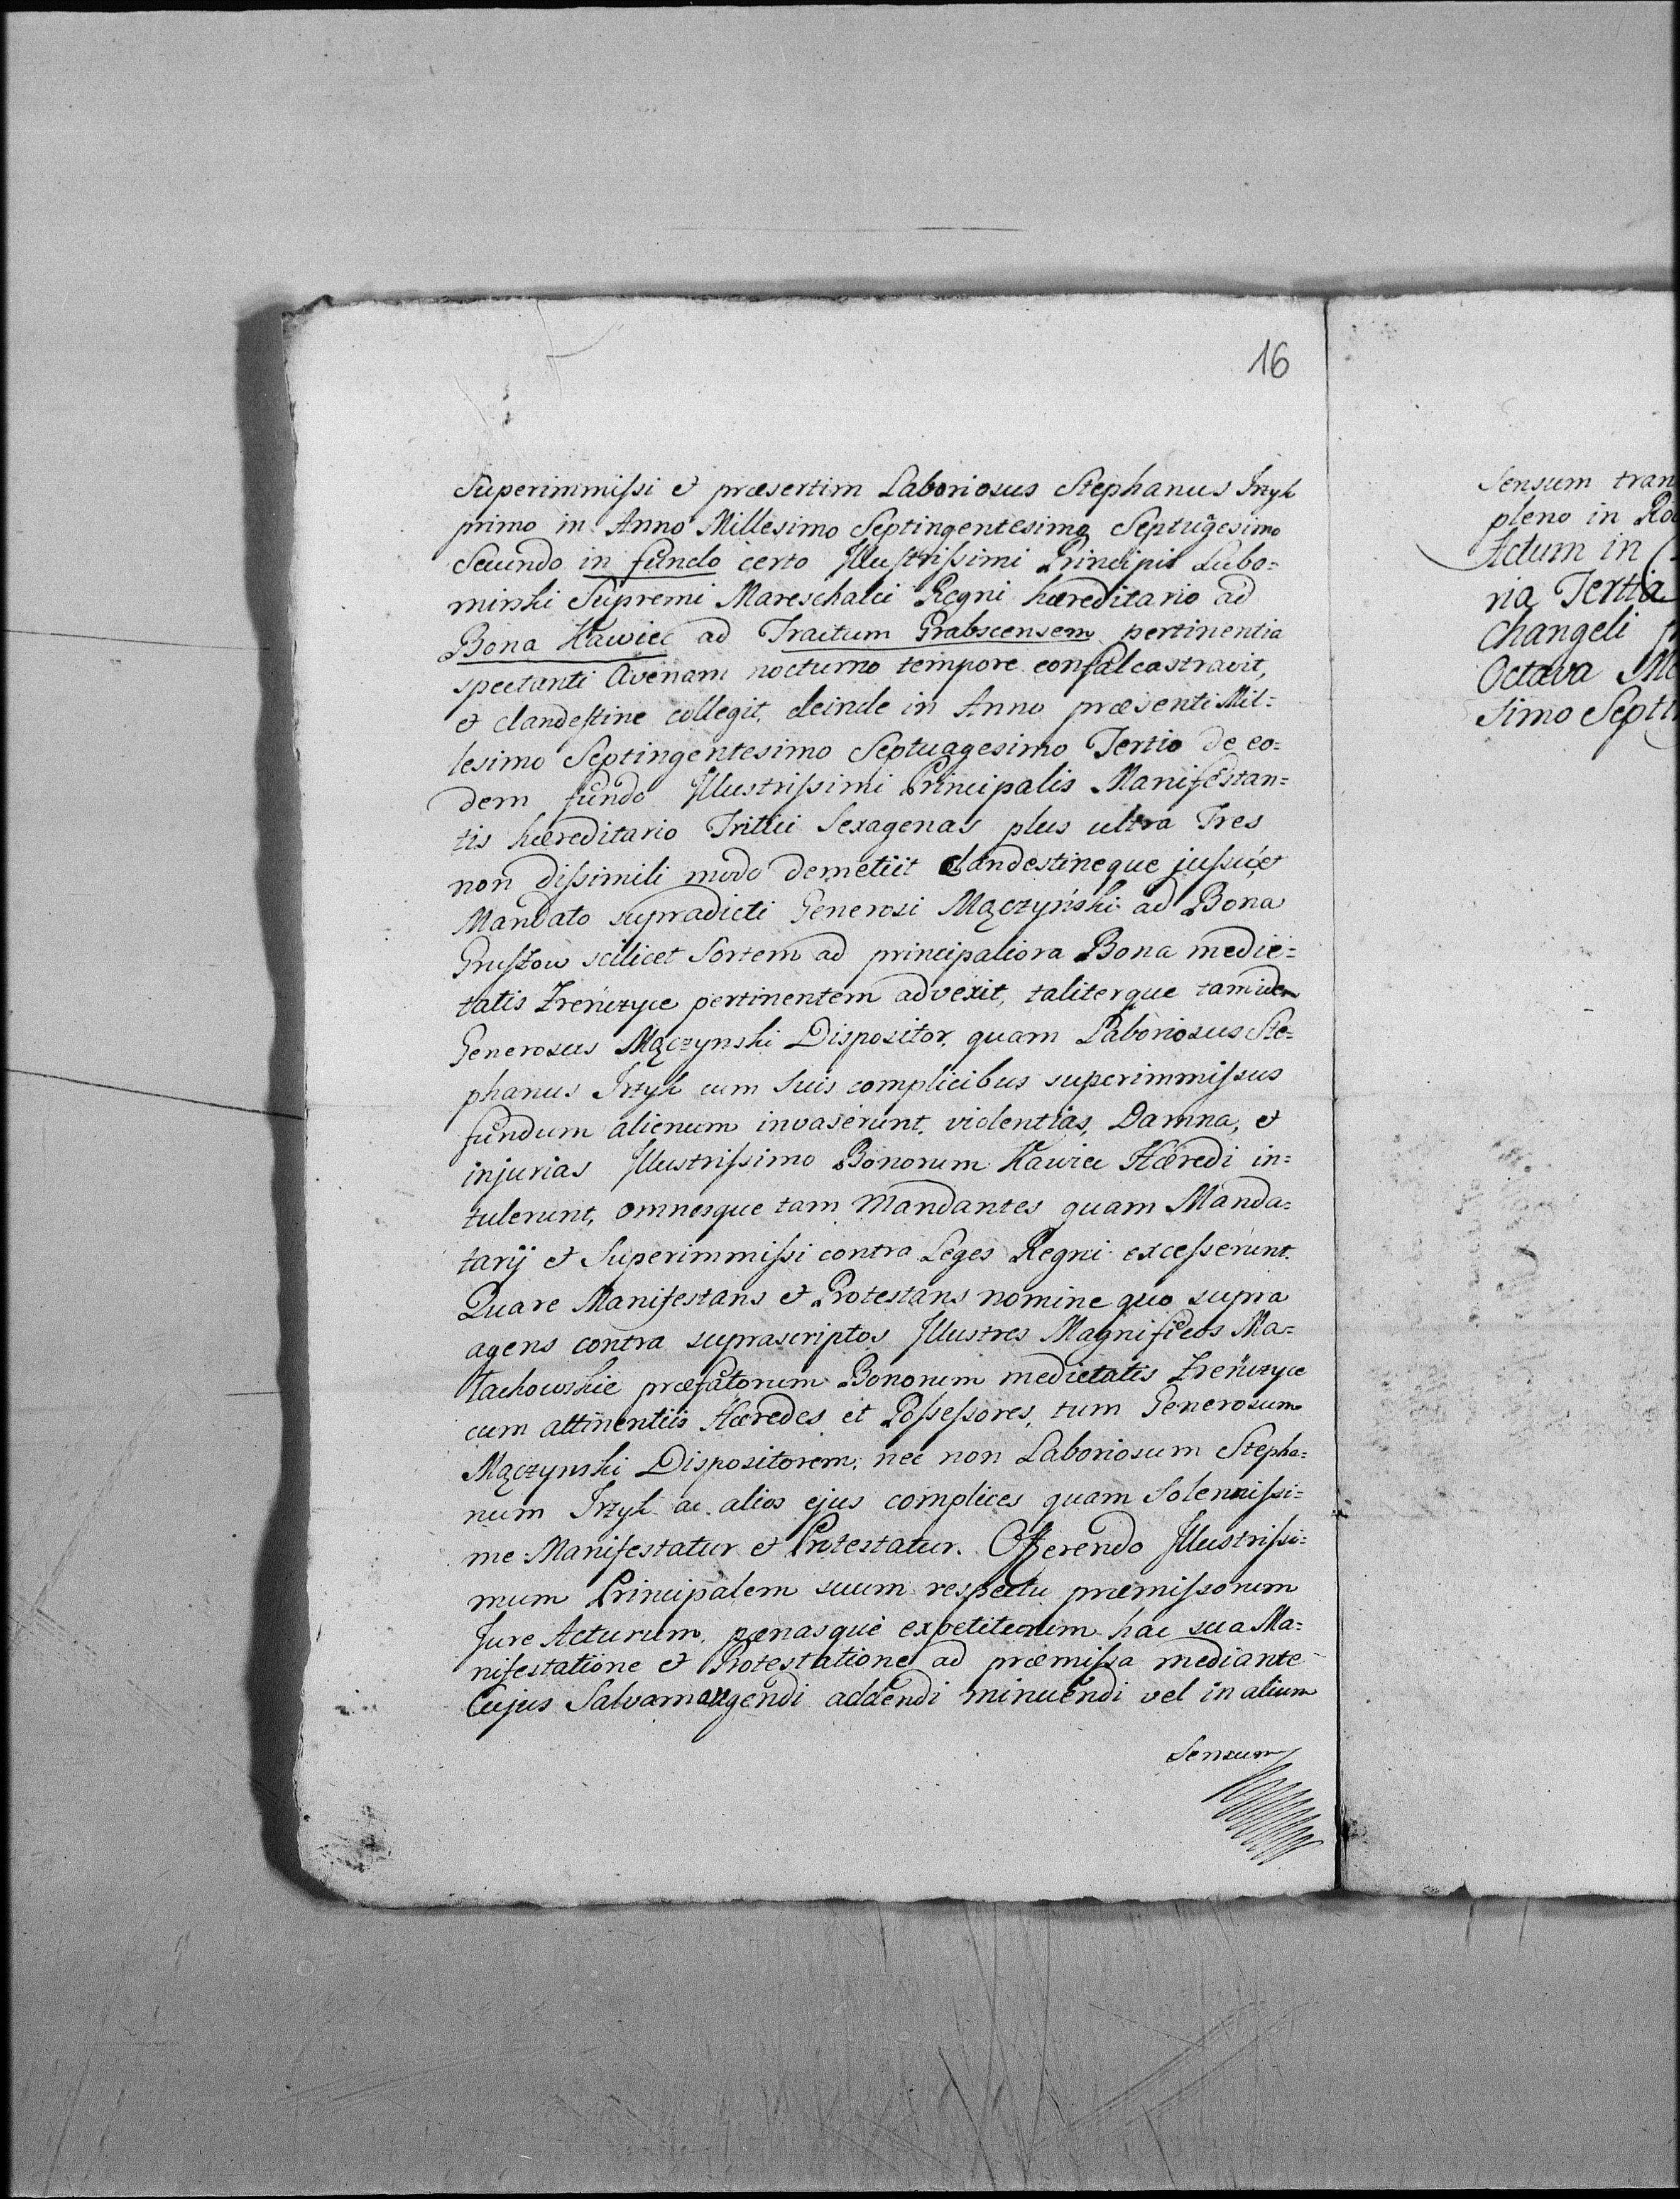 16
Superimmissi et præsertim Laboriosus Stephanus Irzyk
primo in Anno Millesimo Septingentesimo Septuagesimo
Secundo in fundo certo Illustrissimi Principis Lubo=
mirski Supremi Mareschalci Regni hæreditario ad
Bona Kawiec ad Tractum Grabscensem pertinentia
spectanti Avenam nocturno tempore confalcastravit,
et clandestine collegit, deinde in Anno præsenti Mil=
lesimo Septingentesimo Septuagesimo Tertio de eo=
dem fundo Illustrissimi Principalis Manifestan=
tis hæreditario Tritici Sexagenas plus ultra Tres
non dissimili modo demetiit Clandestineque jussu, et
Mandato supradicti Generosi Mączyński ad Bona
Gruszow scilicet Sortem ad principaliora Bona medie=
tatis Zreńczyce pertinentem advexit, taliterque tam idem
Generosus Mączynski Dispositor, quam Laboriosus Ste=
phanus Irzyk cum suis complicibus superimmissus
fundum alienum invaserunt, violentias, Damna, et
injurias Illustrissimo Bonorum Kawiec Hæredi in=
tulerunt, omnesque tam Mandantes quam Manda=
tarij et Superimmissi contra Leges Regni excesserunt.
Quare Manifestans et Protestans nomine quo supra
agens contra suprascriptos Illustres Magnificos Ma=
łachowskie præfatorum Bonorum medietatis Zreńczyce
cum attinentiis Hæredes et Possessores, tum Generosum
Mączynski Dispositorem, nec non Laboriosum Stepha=
num Irzyk ac alios ejus complices quam Solennissi=
me Manifestatur et Protestatur. Offerendo Illustrissi=
mum Principalem suum respectu præmissorum
Jure Acturum, pœnasque expetiturum hac sua Ma=
nifestatione et Protestatione ad præmissa mediante
Cujus Salvam augendi addendi minuendi vel in alium
Sensum
Sensum tran
pleno in
Actum in
ria Tertia
changeli
Octava
simo Septi